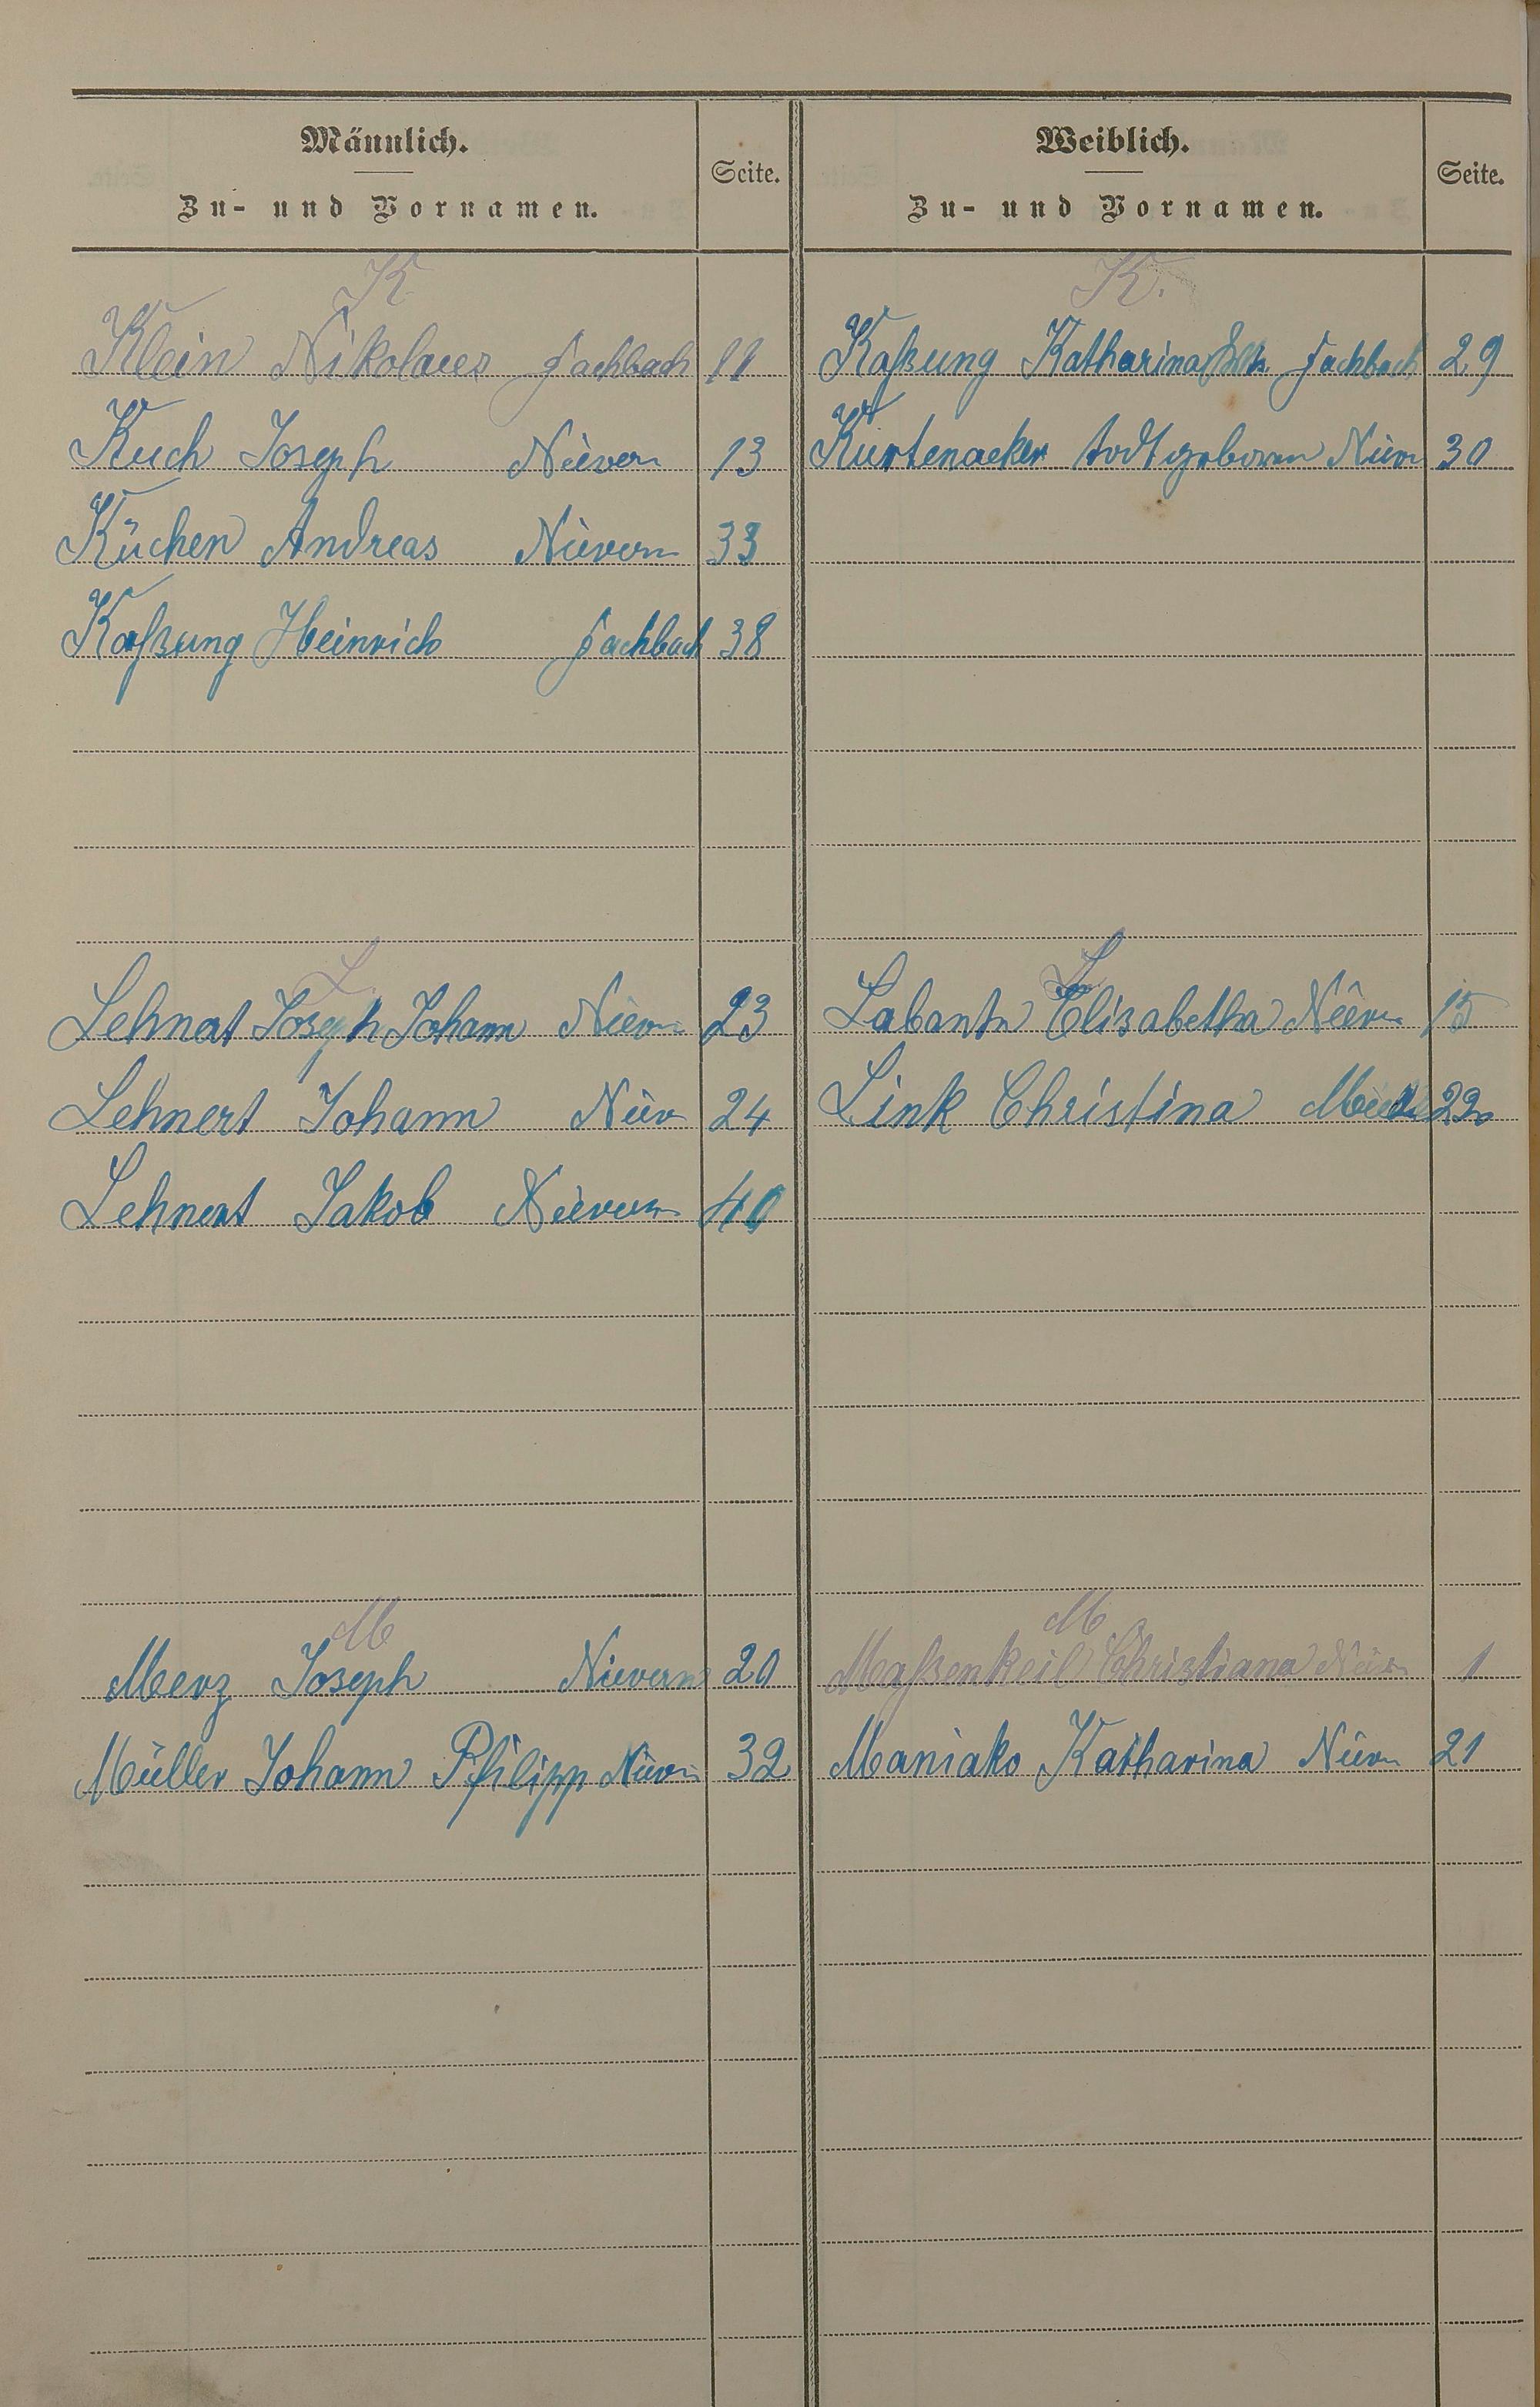 Männlich.
Zu- und Vornamen.
Seite.
K
Klein Nikolaus Fachbach 11
Kuch Joseph Nievern 13
Küchen Andreas Nievern 33
Kaßung Heinrich Fachbach 38
L.
Lehnert Joseph Johann Nievern 23
Lehnert Johann Niev 24
Lehnert Jakob Nievern 40
M
Merz Joseph Nievern 20
Müller Johann Philipp Nievern 32
Weiblich.
Zu- und Vornamen.
Seite.
K.
Kaßung Katharina Fachbach 29
Kurtenacker todtgeboren Nievn 30
L
Elisabetha Nievern 15
Link Christina 22
M
Maßenkeil Christiana Nievn 1
Maniako Katharina Nievn 21